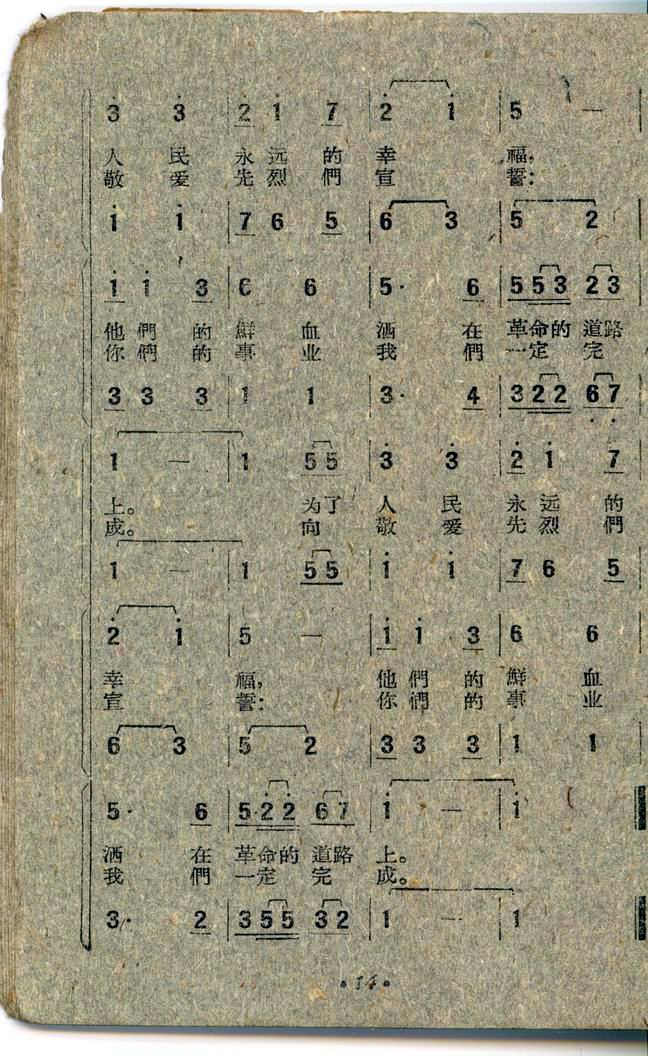 3 3 | 2 1 7 | 2 1 | 5 — |
人 民 永 远 的 幸 福，
敬 爱 先 烈 們 宣 誓：
1 1 | 7 6 5 | 6 3 | 5 2 |
1 1 3 | 6 6 | 5· 6 | 5 5 3 2 3 |
他 們 的 鮮 血 洒 在 革 命 的 道 路
你 們 的 事 业 我 們 一 定 完
3 3 3 | 1 1 | 3· 4 | 3 2 2 6 7 |
1 — | 1 5 5 | 3 3 | 2 1 7
上。 为 了 人 民 永 远 的
成。 向 敬 爱 先 烈 們
1 — | 1 5 5 | 1 1 | 7 6 5
2 1 | 5 — | 1 1 3 | 6 6
幸 福， 他 們 的 鮮 血
宣 誓： 你 們 的 事 业
6 3 | 5 2 | 3 3 3 | 1 1
5· 6 | 5· 2 2 6 7 | 1 — | 1
洒 在 革 命 的 道 路 上。
我 們 一 定 完 成。
3· 2 | 3 5 5 3 2 | 1 — | 1